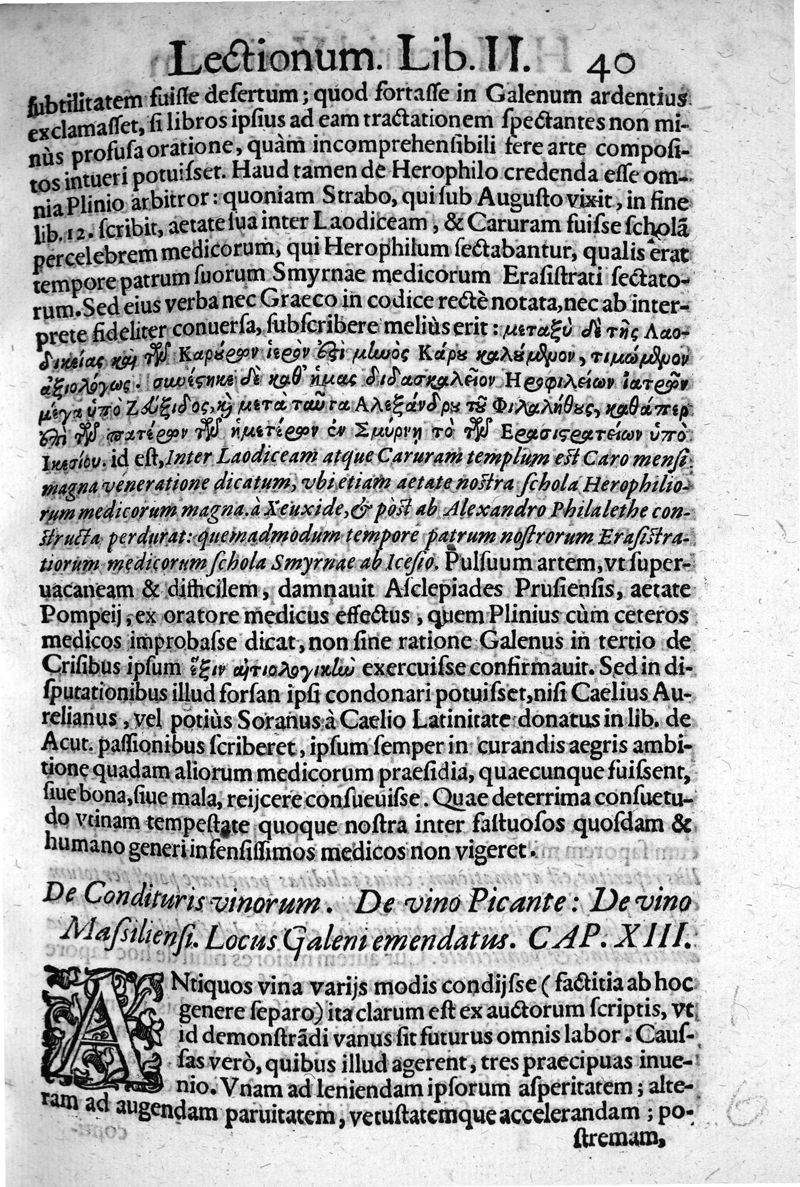 Lectionum. Lib. II. 40
subtilitatem fuisse desertum; quod fortasse in Galenum ardentius
exclamasset, si libros ipsius ad eam tractationem spectantes non mi-
nùs profusa oratione, quàm incomprehensibili fere arte composi-
tos intueri potuisset. Haud tamen de Herophilo credenda esse om-
nia Plinio arbitror: quoniam Strabo, qui sub Augusto vixit, in fine
lib. 12. scribit, aetate sua inter Laodiceam, & Caruram fuisse scholã
percelebrem medicorum, qui Herophilum sectabantur, qualis erat
tempore patrum suorum Smyrnae medicorum Erasistrati sectato-
rum. Sed eius verba nec Graeco in codice rectè notata, nec ab inter-
prete fideliter conuersa, subscribere meliùs erit: μεταξὺ δὲ τῆς Λαο-
δικείας καὶ τῶν Καρούρων ἱερόν ἐστι μηνὸς Κάρου καλούμενον, τιμώμενον
ἀξιολόγως. συνέστηκε δὲ καθ' ἡμας διδασκαλεῖον Ηροφιλείων ἰατρῶν
μέγα ὑπὸ Ζεύξιδος, κὶ μετὰ ταῦτα Αλεξάνδρου τοῦ Φιλαλήθους, καθάπερ
ἐπὶ τῶν πατέρων τῶν ἡμετέρων ἐν Σμύρνῃ τὸ τῶν Ερασιστρατείων ὑπὸ
Ικεσίου. id est, Inter Laodiceam atque Caruram templum est Caro mensi
magna veneratione dicatum, vbi etiam aetate nostra schola Herophilio-
rum medicorum magna. à Xeuxide, & pòst ab Alexandro Philalethe con-
structa perdurat: quemadmodum tempore patrum nostrorum Erasistra-
tiorum medicorum schola Smyrnae ab Icesio. Pulsuum artem, vt super-
uacaneam & difficilem, damnauit Asclepiades Prusiensis, aetate
Pompeij, ex oratore medicus effectus, quem Plinius cùm ceteros
medicos improbasse dicat, non sine ratione Galenus in tertio de
Crisibus ipsum ἕξιν αἰτιολογικὴν exercuisse confirmauit. Sed in di-
sputationibus illud forsan ipsi condonari potuisset, nisi Caelius Au-
relianus, vel potiùs Soranus à Caelio Latinitate donatus in lib. de
Acut. passionibus scriberet, ipsum semper in curandis aegris ambi-
tione quadam aliorum medicorum praesidia, quaecunque fuissent,
siue bona, siue mala, reijcere consueuisse. Quae deterrima consuetu-
do vtinam tempestate quoque nostra inter fastuosos quosdam &
humano generi infensissimos medicos non vigeret.
De Condituris vinorum. De vino Picante: De vino
Massiliensi. Locus Galeni emendatus. CAP. XIII.
ANtiquos vina varijs modis condijsse (factitia ab hoc
genere separo) ita clarum est ex auctorum scriptis, vt
id demonstrãdi vanus sit futurus omnis labor. Caus-
sas verò, quibus illud agerent, tres praecipuas inue-
nio. Vnam ad leniendam ipsorum asperitatem; alte-
ram ad augendam paruitatem, vetustatemque accelerandam; po-
stremam,